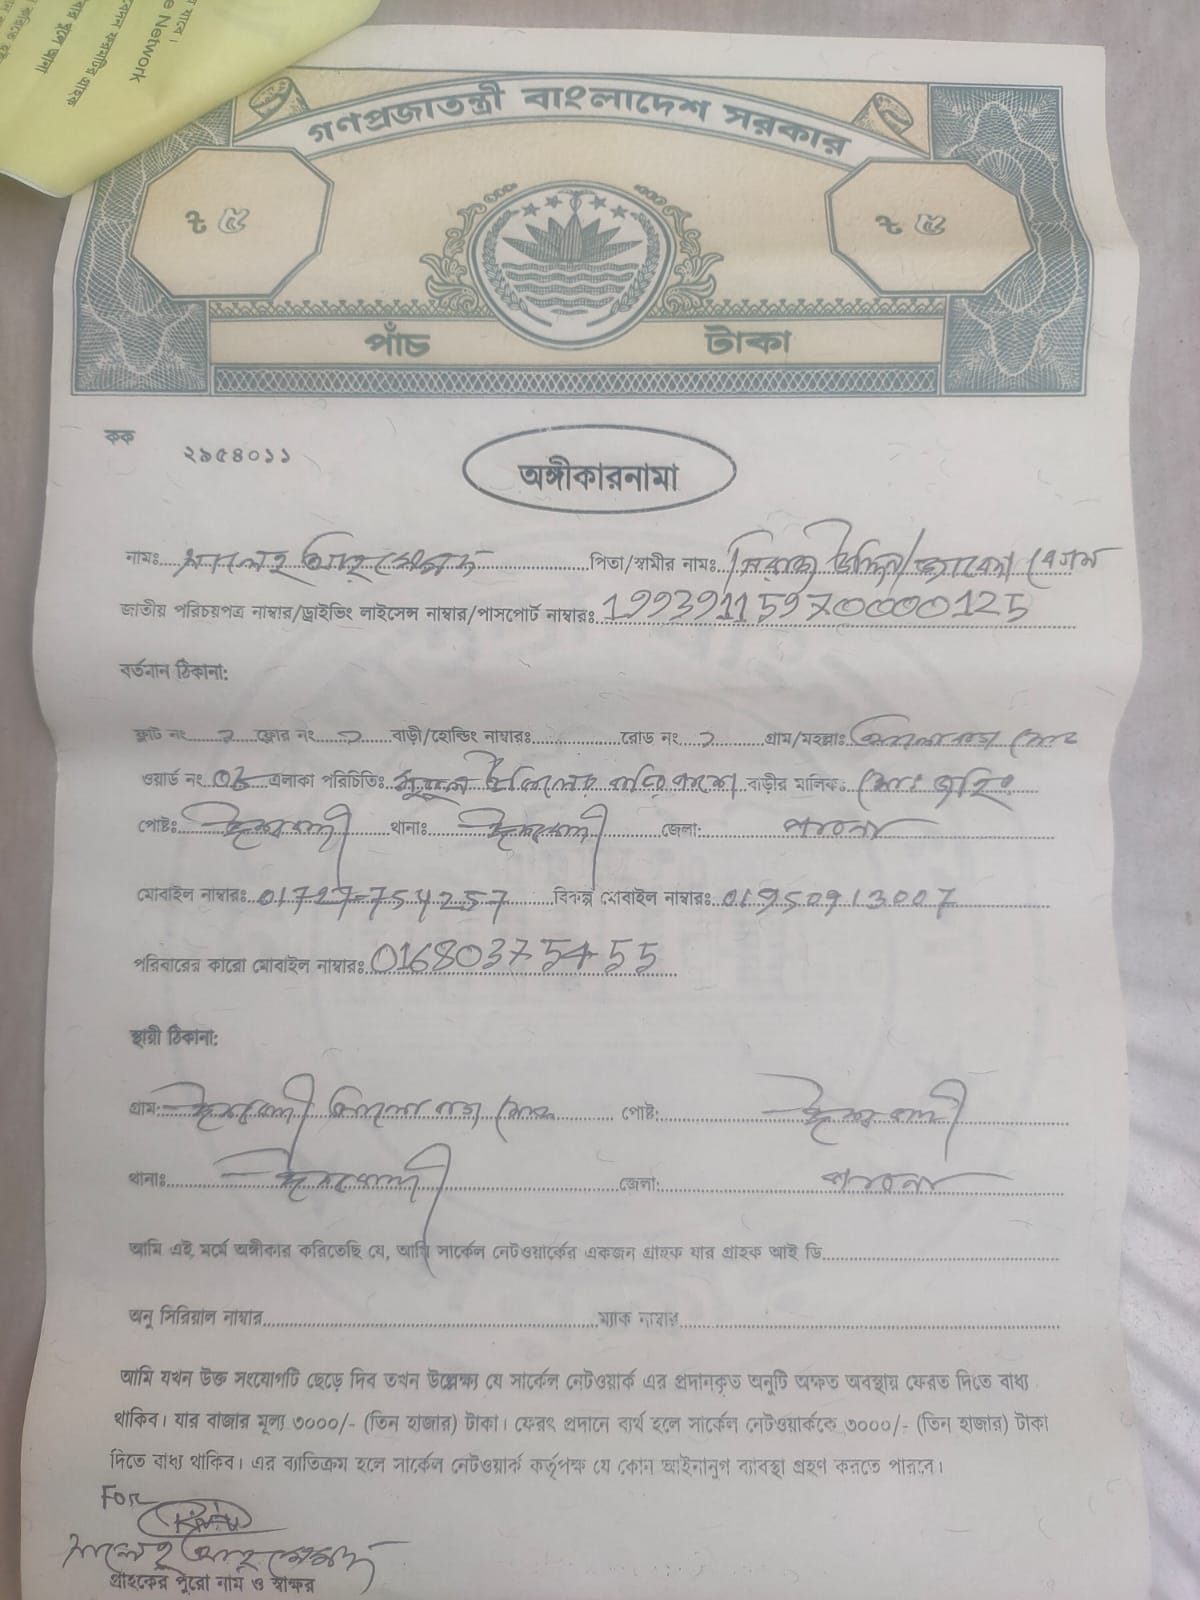 গণপ্রজাতন্ত্রী বাংলাদেশ সরকার
৳ ৫ ৳ ৫
পাঁচ টাকা
কক
২৯৫৪০১১
অঙ্গীকারনামা
নামঃ সালেহ আহম্মেদ পিতা/স্বামীর নামঃ সিরাজ উদ্দিন/ বেগম
জাতীয় পরিচয়পত্র নাম্বার/ড্রাইভিং লাইসেন্স নাম্বার/পাসপোর্ট নাম্বারঃ 19939115970000125
বর্তনান ঠিকানা:
ফ্লাট নং ফ্লোর নং বাড়ী/হোল্ডিং নাম্বারঃ রোড নং গ্রাম/মহল্লাঃ
ওয়ার্ড নং এলাকা পরিচিতিঃ উকিলের বাড়ির পাশে বাড়ীর মালিক: মোঃ
পোষ্টঃ ঈশ্বরদী থানাঃ ঈশ্বরদী জেলা: পাবনা
মোবাইল নাম্বারঃ 01727-754257 বিকল্প মোবাইল নাম্বারঃ 01950913007
পরিবারের কারো মোবাইল নাম্বারঃ 01680375455
স্থায়ী ঠিকানা:
গ্রাম: ঈশ্বরদী পোষ্ট: ঈশ্বরদী
থানাঃ ঈশ্বরদী জেলা: পাবনা
আমি এই মর্মে অঙ্গীকার করিতেছি যে, আমি সার্কেল নেটওয়ার্কের একজন গ্রাহক যার গ্রাহক আই ডি
অনু সিরিয়াল নাম্বার ম্যাক নাম্বার
আমি যখন উক্ত সংযোগটি ছেড়ে দিব তখন উল্লেক্ষ্য যে সার্কেল নেটওয়ার্ক এর প্রদানকৃত অনুটি অক্ষত অবস্থায় ফেরত দিতে বাধ্য
থাকিব। যার বাজার মূল্য ৩০০০/- (তিন হাজার) টাকা। ফেরৎ প্রদানে ব্যর্থ হলে সার্কেল নেটওয়ার্ককে ৩০০০/- (তিন হাজার) টাকা
দিতে বাধ্য থাকিব। এর ব্যাতিক্রম হলে সার্কেল নেটওয়ার্ক কর্তৃপক্ষ যে কোন আইনানুগ ব্যাবস্থা গ্রহণ করতে পারবে।
For
সালেহ আহম্মেদ
গ্রাহকের পুরো নাম ও স্বাক্ষর